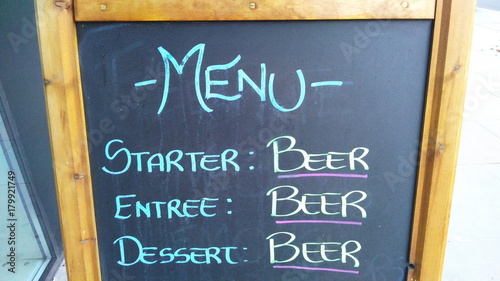 - MENU -
STARTER: BEER
ENTREE: BEER
DESSERT: BEER
Adobe Stock | #179921749